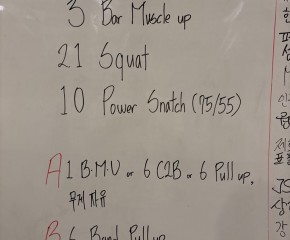 3 Bar Muscle up
21 Squat
10 Power Snatch (75/55)
A 1 B.M.U or 6 C2B or 6 Pull up,
무게 자유
B 6 Band Pull up